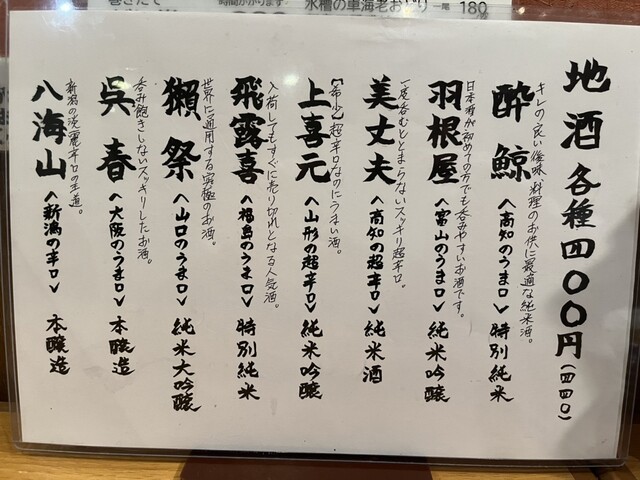 水槽の車海老おどり 一尾 180
地酒各種四〇〇円(四四〇)
キレの良い後味、料理のお供に最適な純米酒。
酔鯨 <高知のうま口> 特別純米
日本酒が初めての方でも呑みやすいお酒です。
羽根屋 <富山のうま口> 純米吟醸
一度呑むととまらないスッキリ超辛口。
美丈夫 <高知の超辛口> 純米酒
【希少】超辛口なのにうまい酒。
上喜元 <山形の超辛口> 純米吟醸
入荷してもすぐに売り切れとなる人気酒。
飛露喜 <福島のうま口> 特別純米
世界に通用する究極のお酒。
獺祭 <山口のうま口> 純米大吟醸
呑み飽きしないスッキリしたお酒。
呉春 <大阪のうま口> 本醸造
新潟の淡麗辛口の王道。
八海山 <新潟の辛口> 本醸造